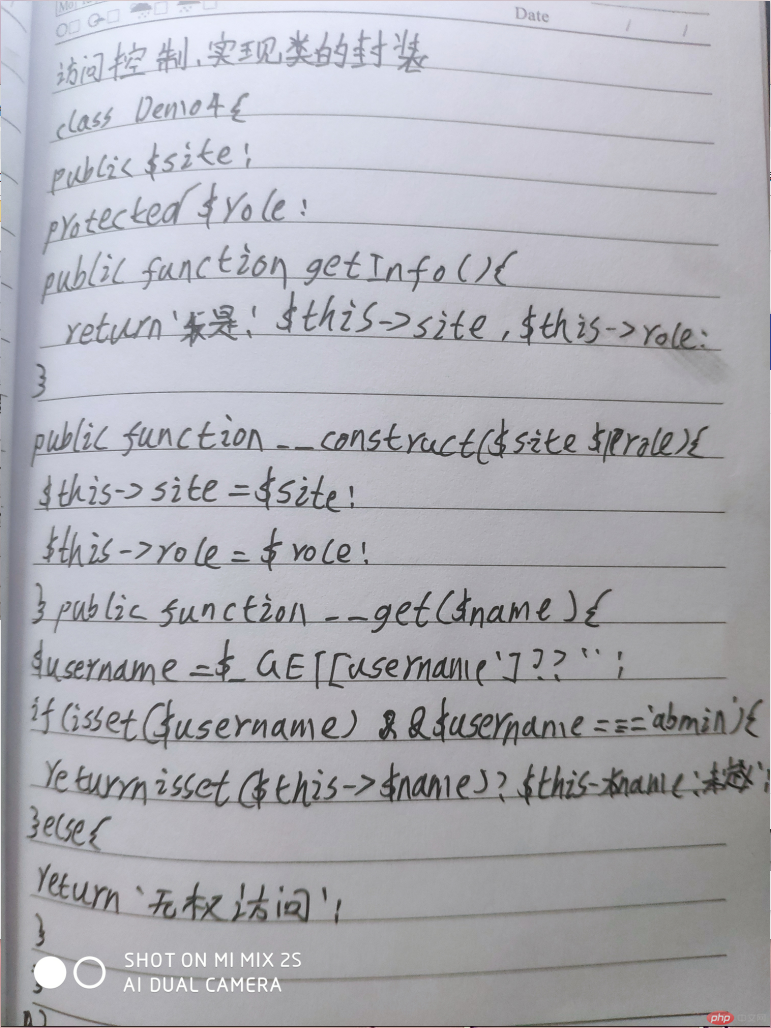 Date
访问控制,实现类的封装
class Demo4{
public $site;
protected $role;
public function getInfo(){
return '是' $this->site , $this->role;
}
public function __construct($site $role){
$this->site = $site;
$this->role = $role;
} public function __get($name){
$username = $_GET[[username']??'';
if(isset($username) && $username === 'abmin'){
returrn isset($this->$name)? $this->name:
}else{
return '无权访问';
}
}
SHOT ON MI MIX 2S
AI DUAL CAMERA
php中文网